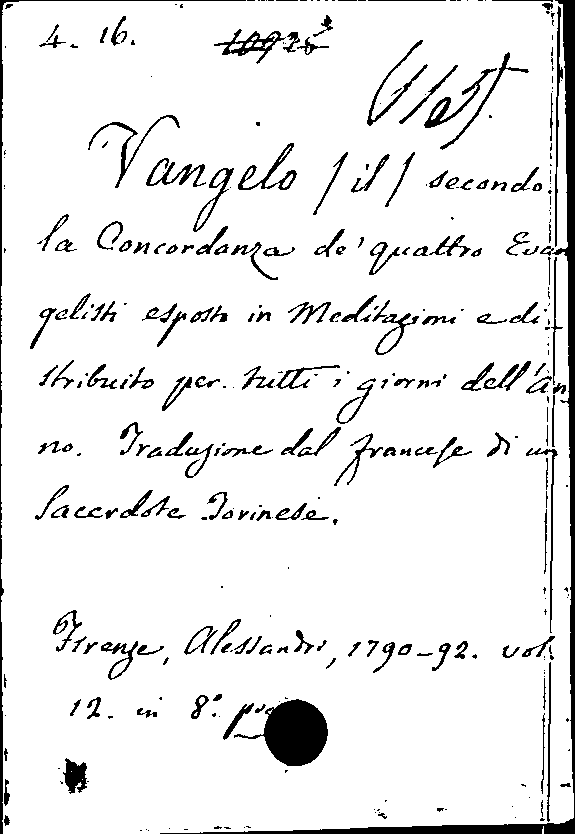 4. 16. 10925
(1/25).
Vangelo / il / secondo
la Concordanza de' quattro Evan
gelisti esposto in Meditazioni e di-
stribuito per tutti i giorni dell'an
no. Traduzione dal francese di un
Sacerdote Torinese.
Firenze, Alessandri, 1790-92. vol.
12. in 8°.